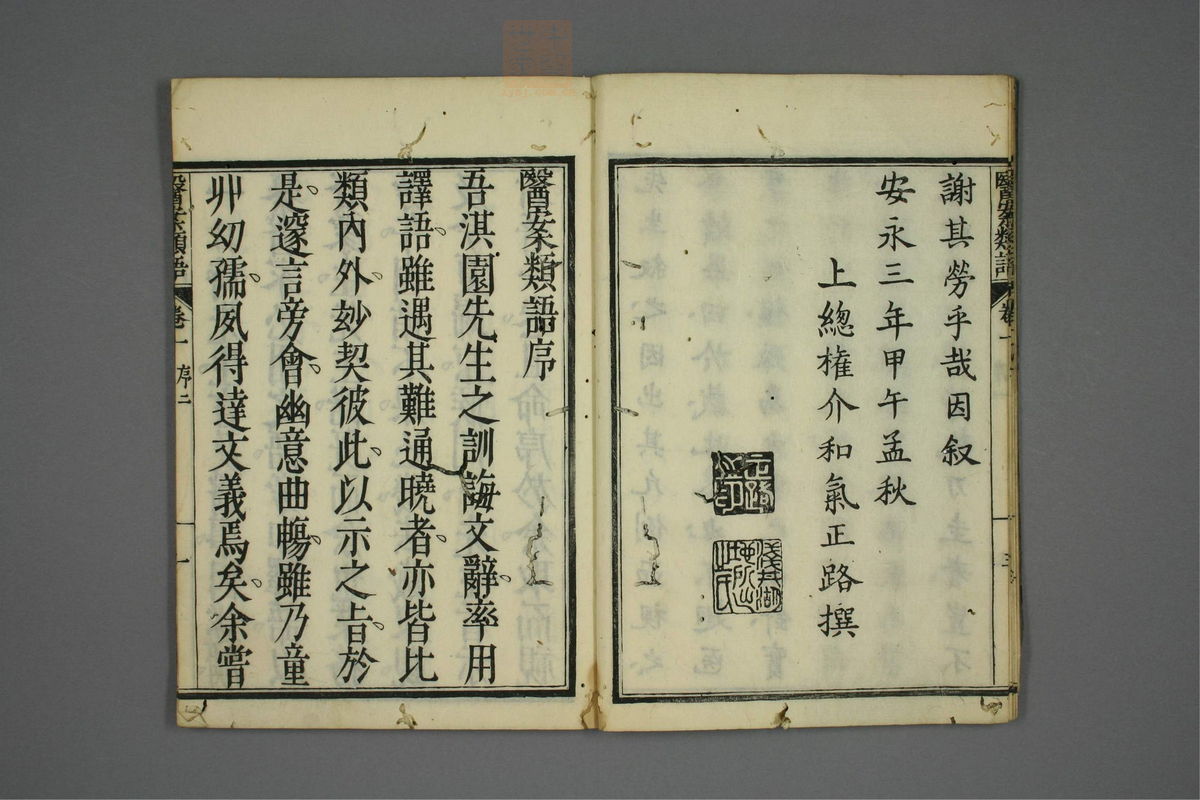 謝其勞乎哉因叙
安永三年甲午孟秋
上總權介和氣正路撰
醫案類語序
吾淇園先生之訓誨文辭率用
譯語雖遇其難通曉者亦皆比
類內外玅契彼此以示之㫖於
是邃言旁會幽意曲暢雖乃童
丱幼孺夙得達文義焉矣余嘗
醫案類語 卷一 序二 一